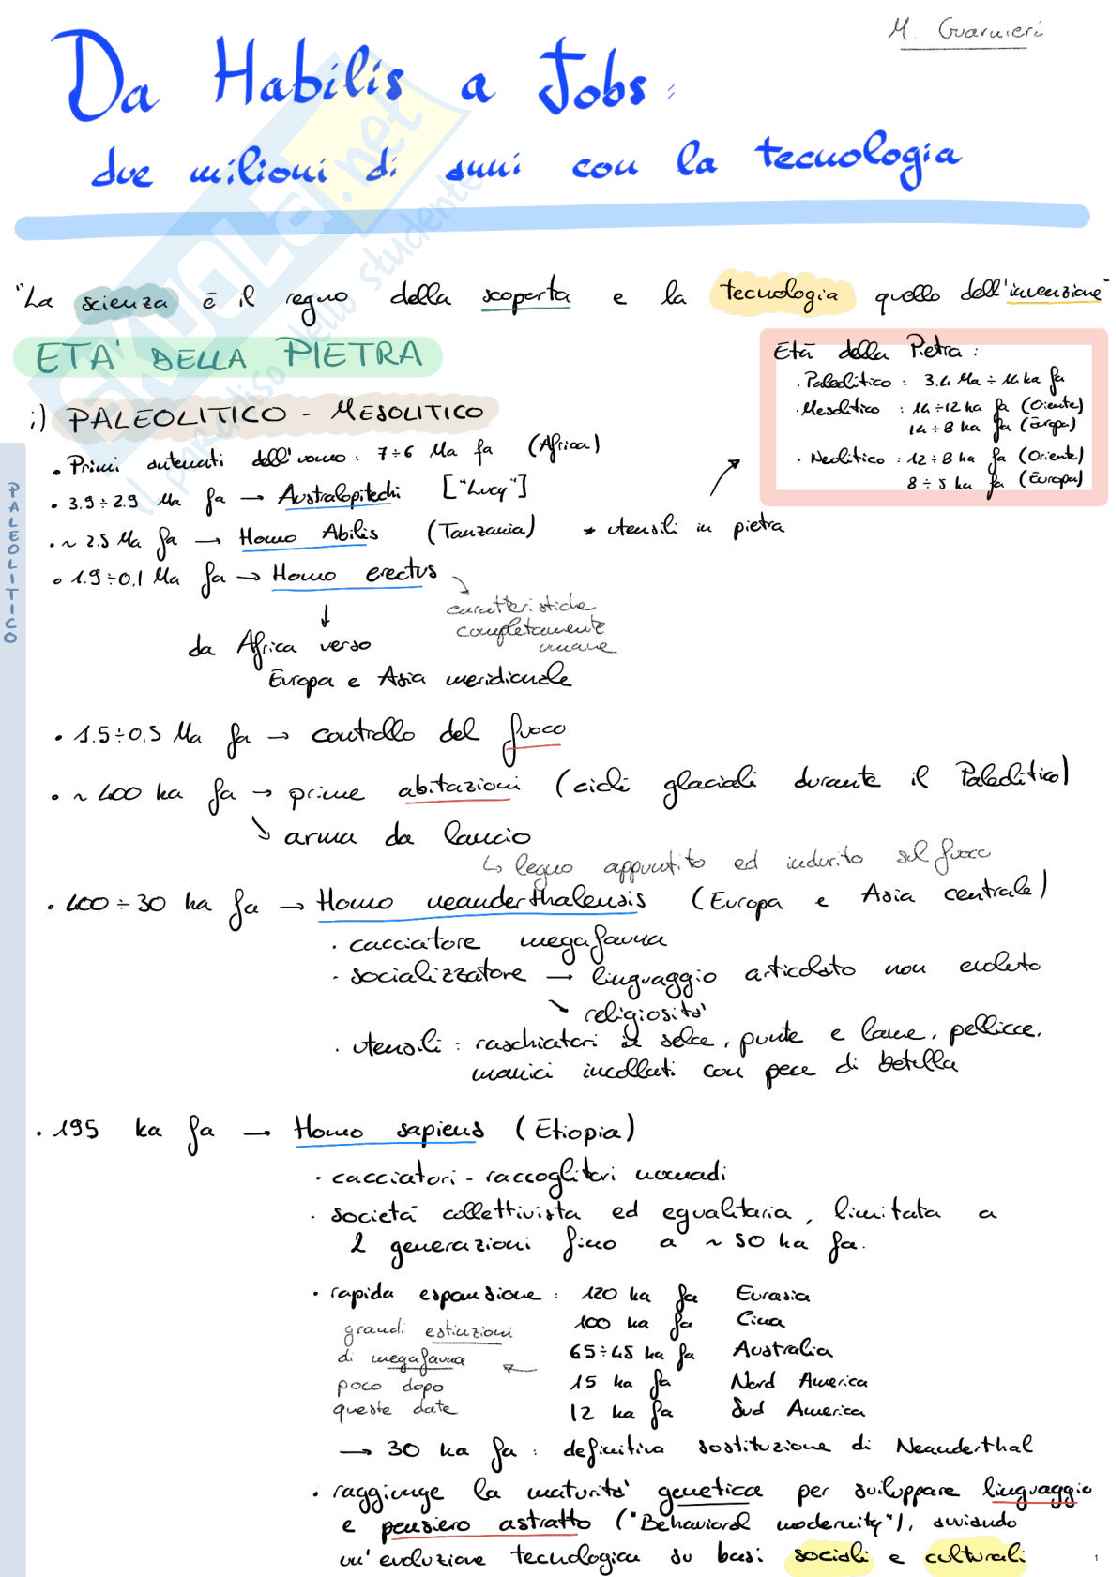 M. Guarnieri
Da Habilis a Jobs:
due milioni di anni con la tecnologia
SKUOLA.net
il paradiso dello studente
"La scienza è il regno della scoperta e la tecnologia quello dell'invenzione"
ETA' DELLA PIETRA
Età della Pietra:
· Paleolitico: 3.4 Ma ÷ 14 ka fa
· Mesolitico: 14÷12 ka fa (Oriente)
14÷8 ka fa (Europa)
· Neolitico: 12÷8 ka fa (Oriente)
8÷5 ka fa (Europa)
i) PALEOLITICO - MESOLITICO
PALEOLITICO
• Primi antenati dell'uomo: 7÷6 Ma fa (Africa)
• 3.9÷2.9 Ma fa → Australopitechi ["Lucy"]
• ~ 2.5 Ma fa → Homo Abilis (Tanzania) * utensili in pietra
• 1.9÷0.1 Ma fa → Homo erectus
↘ caratteristiche
completamente
umane
↓
da Africa verso
Europa e Asia meridionale
• 1.5÷0.5 Ma fa → controllo del fuoco
• ~ 400 ka fa → prime abitazioni (cicli glaciali durante il Paleolitico)
↘ arma da lancio
↳ legno appuntito ed indurito sul fuoco
• 400÷30 ka fa → Homo neanderthalensis (Europa e Asia centrale)
· cacciatore megafauna
· socializzatore → linguaggio articolato non evoluto
↘ religiosità
· utensili: raschiatori di selce, punte e lame, pellicce,
manici incollati con pece di betulla
· 195 ka fa → Homo sapiens (Etiopia)
· cacciatori-raccoglitori nomadi
· società collettivista ed egualitaria, limitata a
2 generazioni fino a ~ 50 ka fa.
· rapida espansione: 120 ka fa Eurasia
100 ka fa Cina
65÷45 ka fa Australia
15 ka fa Nord America
12 ka fa Sud America
grandi estinzioni
di megafauna ←
poco dopo
queste date
→ 30 ka fa: definitiva sostituzione di Neanderthal
· raggiunge la maturità genetica per sviluppare linguaggio
e pensiero astratto ("Behavioral modernity"), avviando
un'evoluzione tecnologica su basi sociali e culturali
1